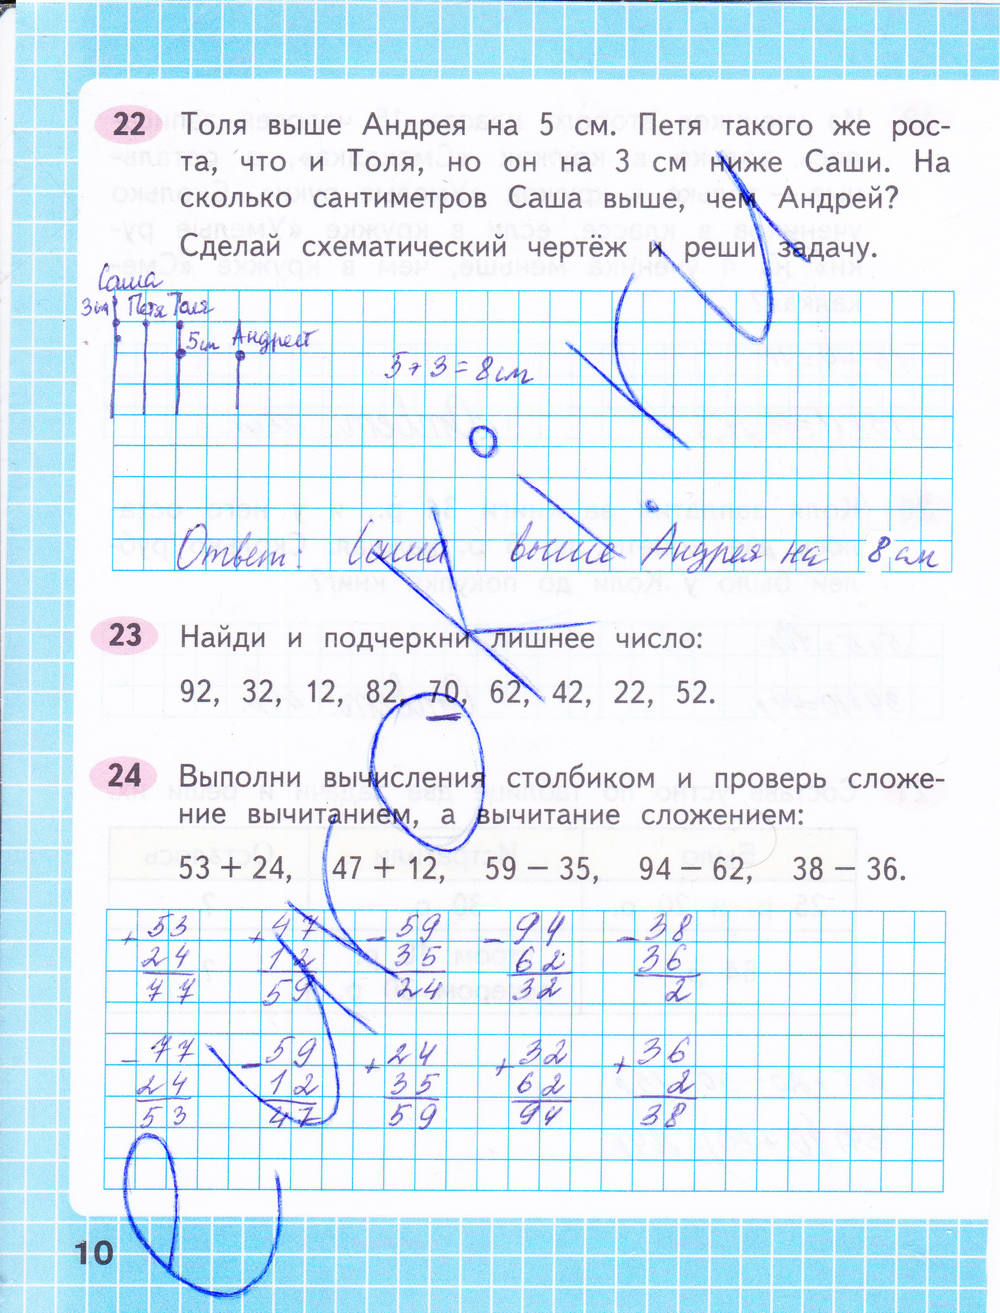 22 Толя выше Андрея на 5 см. Петя такого же рос-
та, что и Толя, но он на 3 см ниже Саши. На
сколько сантиметров Саша выше, чем Андрей?
Сделай схематический чертёж и реши задачу.
Саша
3см Петя Толя
5см Андрей
5+3=8см
Ответ: Саша выше Андрея на 8 см
23 Найди и подчеркни лишнее число:
92, 32, 12, 82, 70, 62, 42, 22, 52.
24 Выполни вычисления столбиком и проверь сложе-
ние вычитанием, а вычитание сложением:
53 + 24, 47 + 12, 59 − 35, 94 − 62, 38 − 36.
+ 53 + 47 − 59 − 94 − 38
24 12 35 62 36
77 59 24 32 2
− 77 − 59 + 24 + 32 + 36
24 12 35 62 2
53 47 59 94 38
10